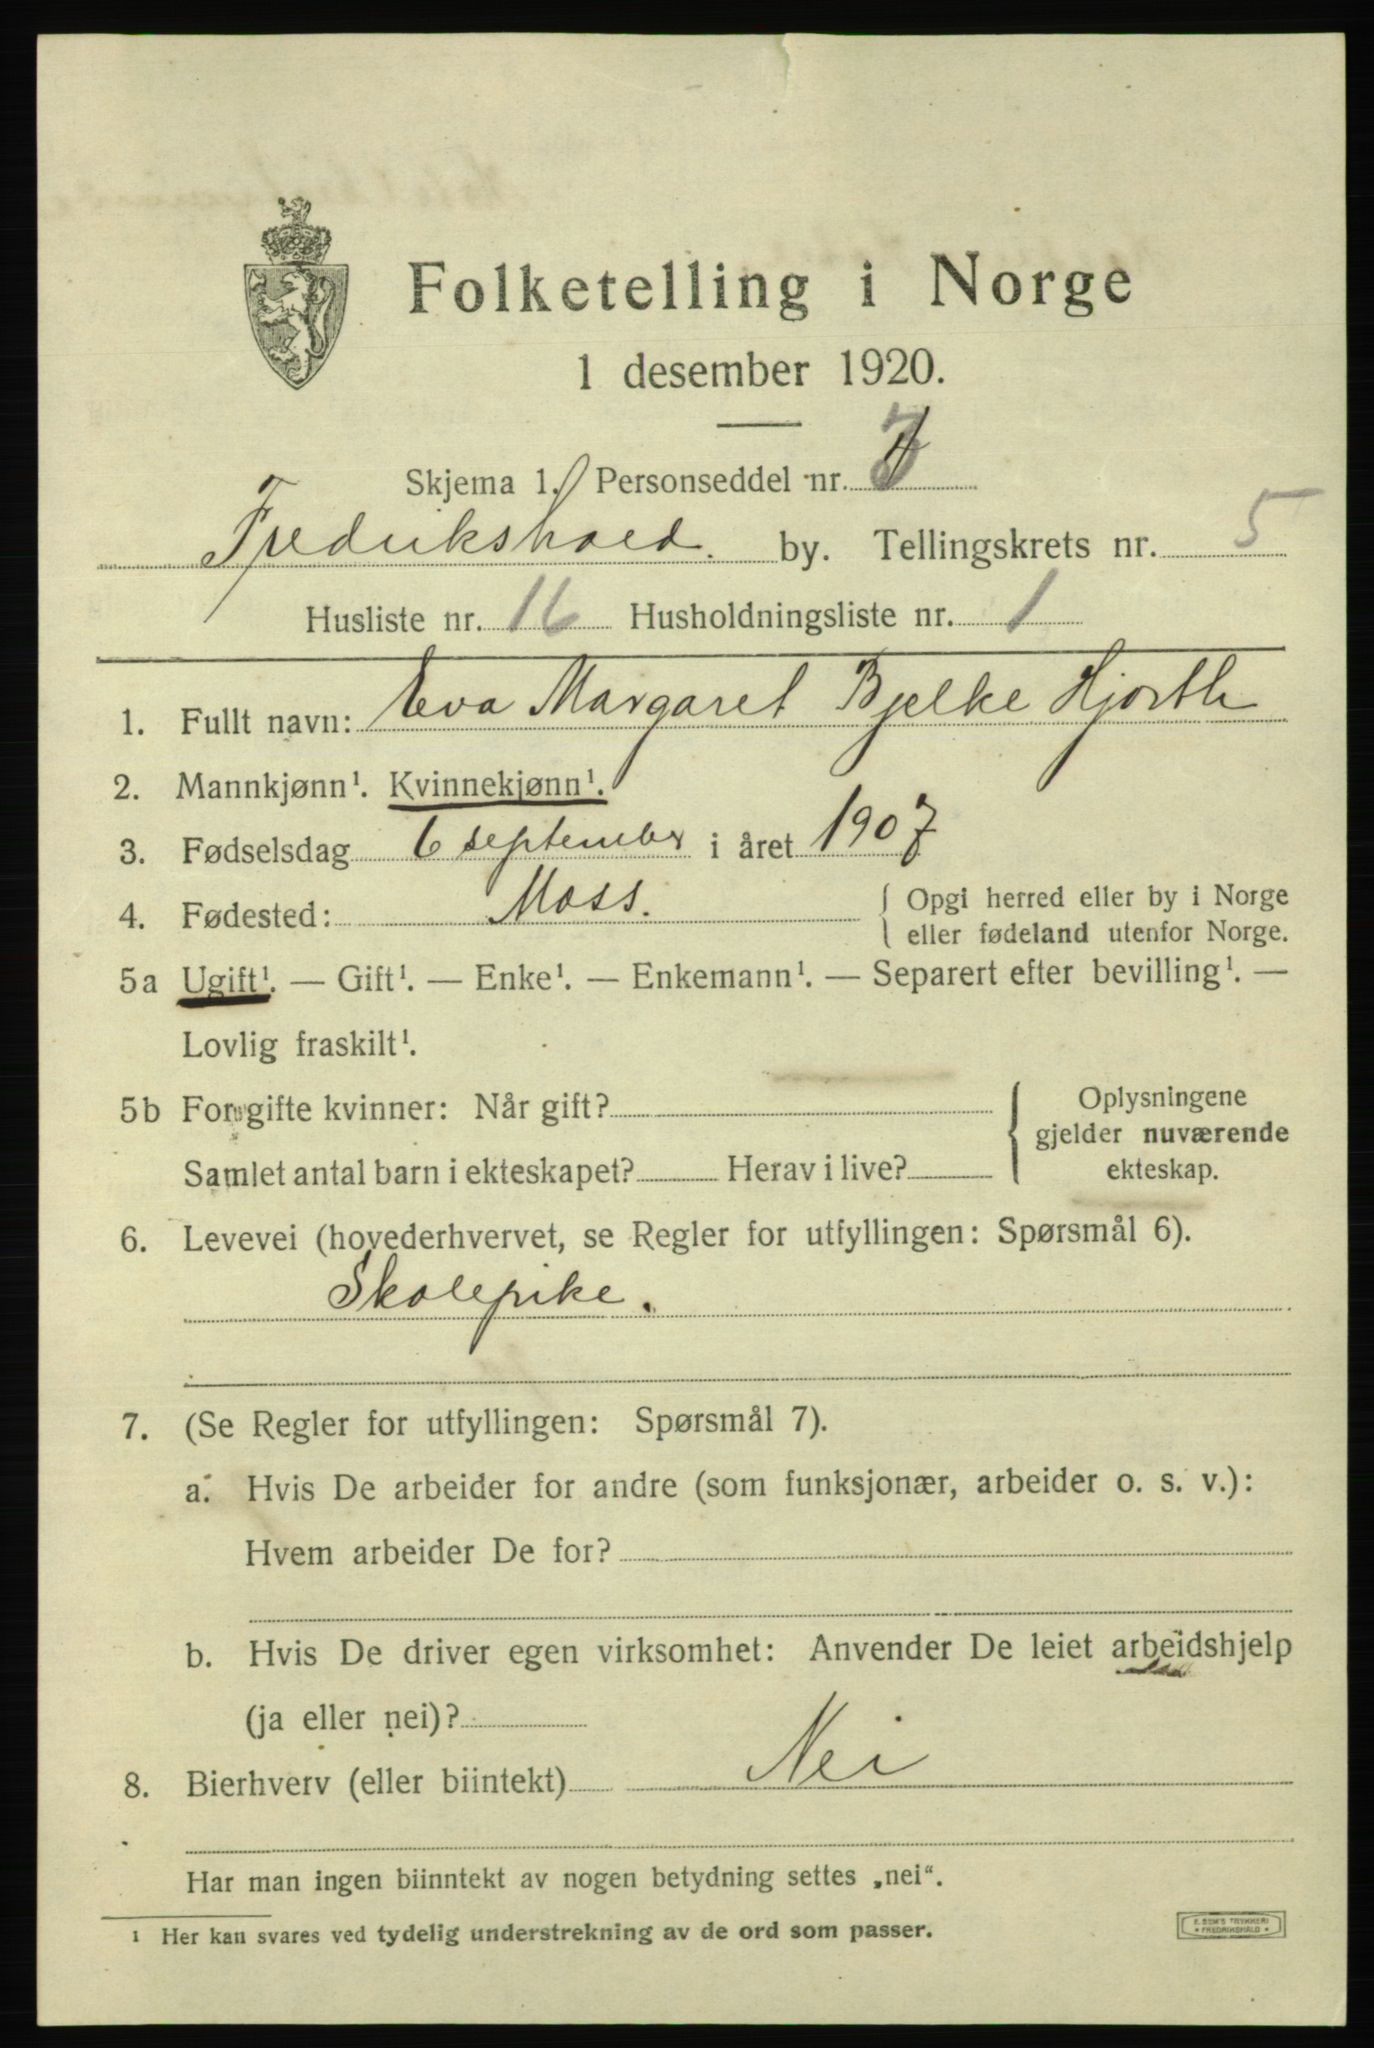 Folketelling i Norge
1 desember 1920.
Skjema 1. Personseddel nr.
Fredrikshald. by. Tellingskrets nr. 5
Husliste nr. 16 Husholdningsliste nr. 1
1. Fullt navn: Eva Margaret Bjelke Hjorth
2. Mannkjønn¹. Kvinnekjønn¹.
3. Fødselsdag 6 september i året 1907
4. Fødested: Moss. { Opgi herred eller by i Norge
eller fødeland utenfor Norge.
5a Ugift¹. — Gift¹. — Enke¹. — Enkemann¹. — Separert efter bevilling¹. —
Lovlig fraskilt¹.
5b For gifte kvinner: Når gift?
Samlet antal barn i ekteskapet? Herav i live?
{ Oplysningene
gjelder nuværende
ekteskap.
6. Levevei (hovederhvervet, se Regler for utfyllingen: Spørsmål 6).
Skolepike.
7. (Se Regler for utfyllingen: Spørsmål 7).
a. Hvis De arbeider for andre (som funksjonær, arbeider o. s. v.):
Hvem arbeider De for?
b. Hvis De driver egen virksomhet: Anvender De leiet arbeidshjelp
(ja eller nei)?
8. Bierhverv (eller biintekt) Nei
Har man ingen biinntekt av nogen betydning settes „nei“.
¹ Her kan svares ved tydelig understrekning av de ord som passer.
E. SEM'S TRYKKERI
* FREDRIKSHALD *